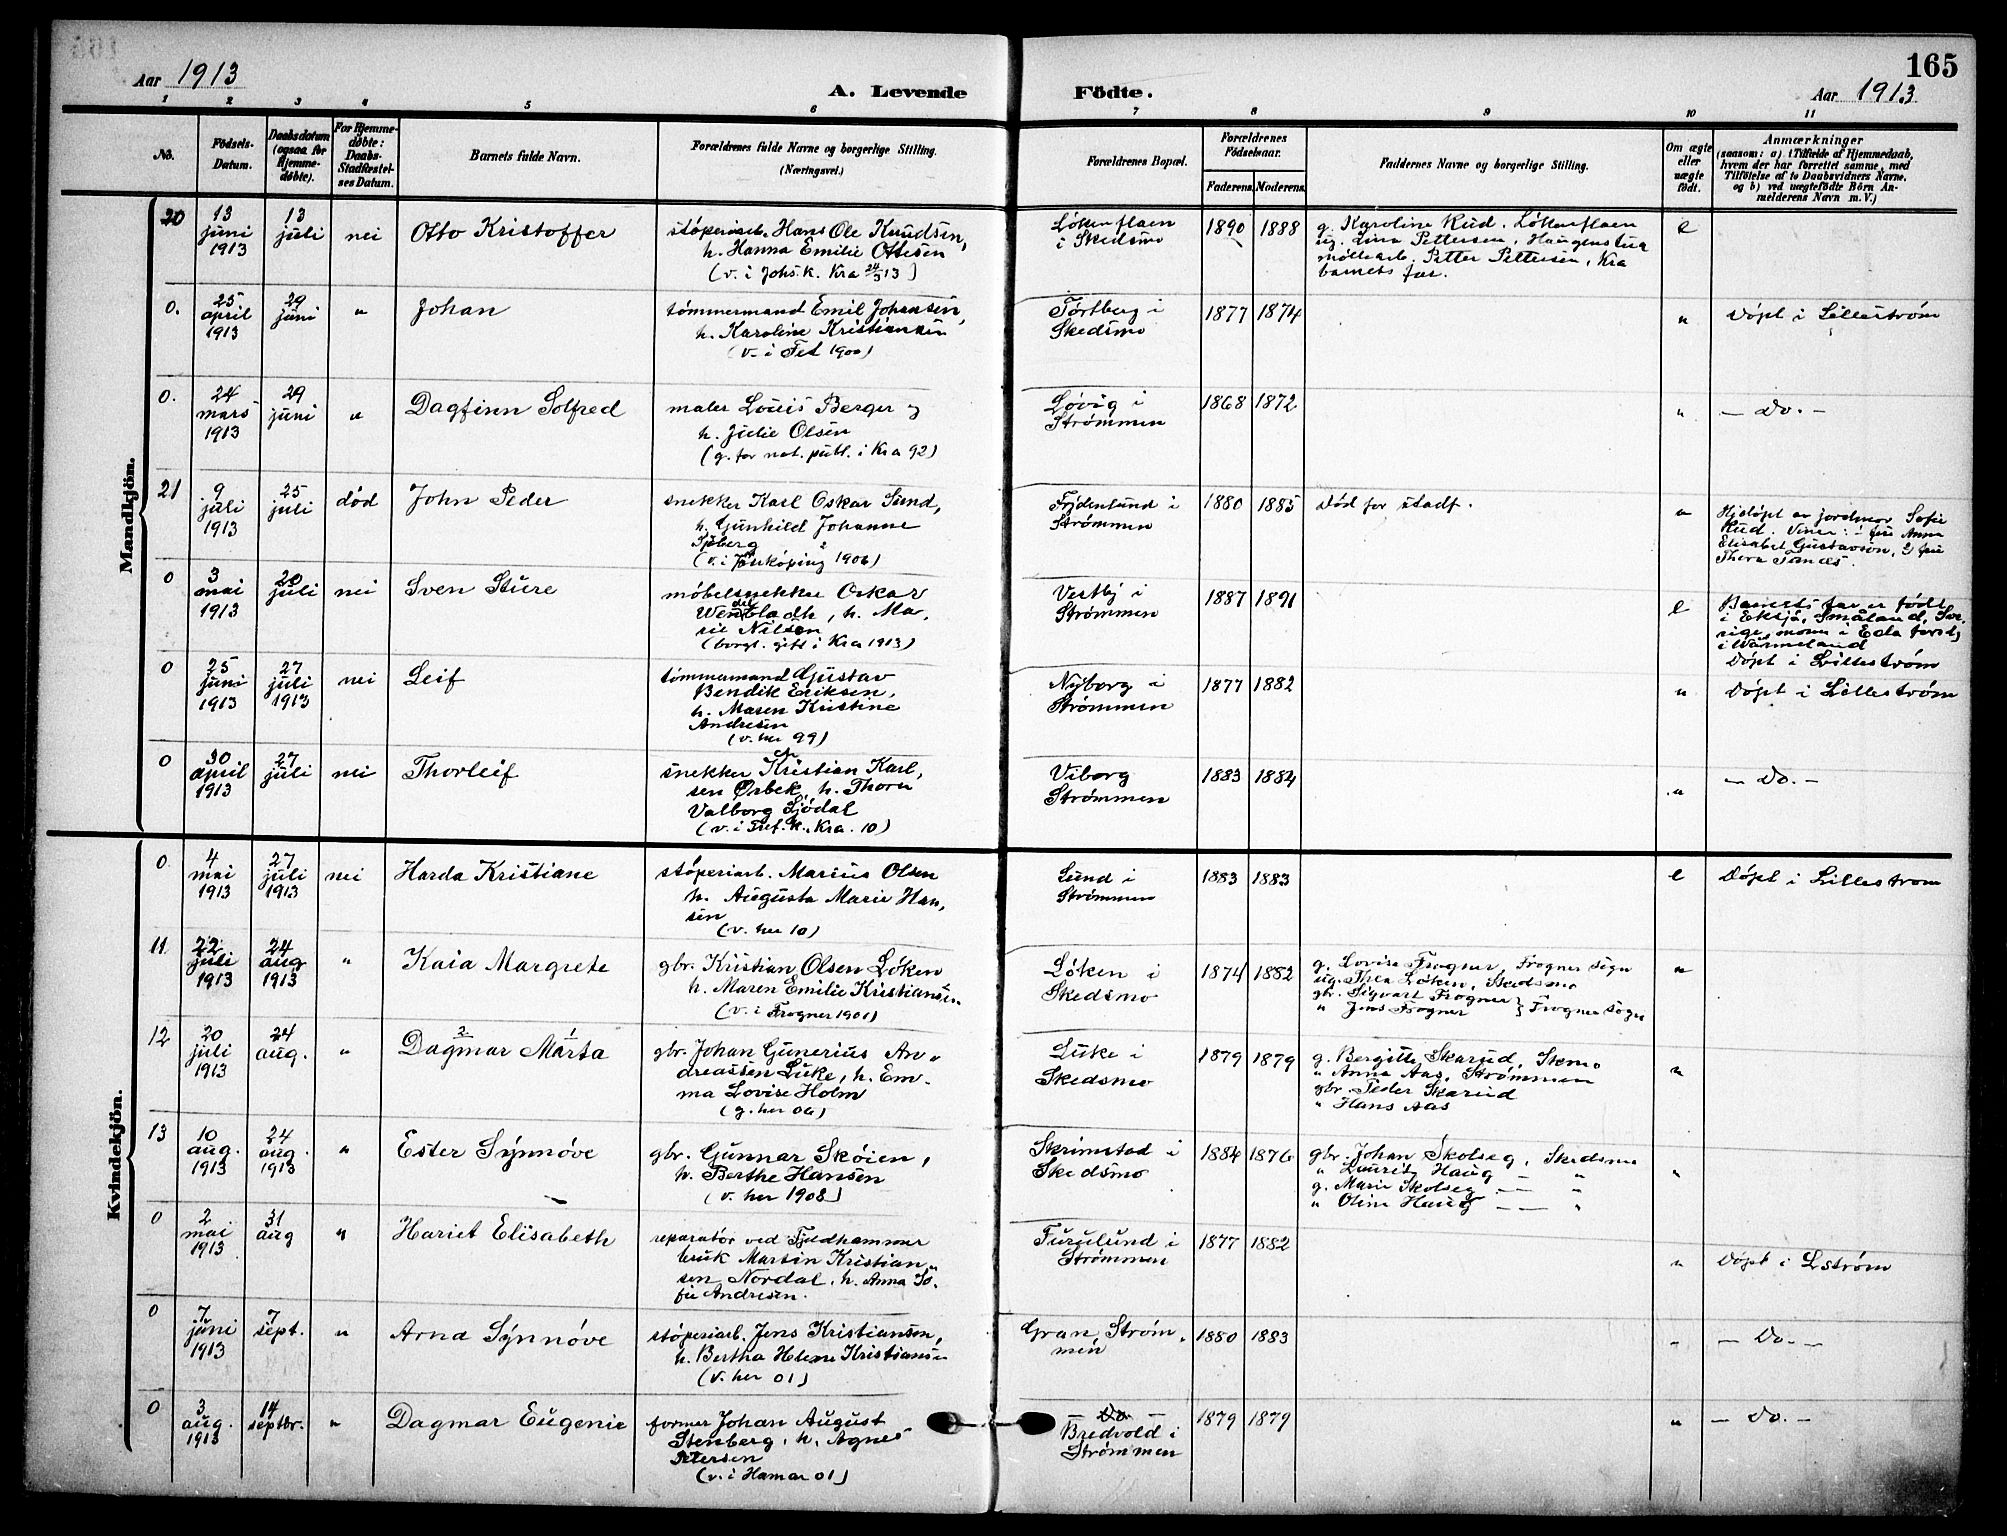 165
Aar 1913
A. Levende Födte.
Aar 1913
1 2 3 4 5 6 7 8 9 10 11
No.
Födsels-Datum.
Daabsdatum (ogsaa for Hjemme-døbte).
For Hjemme-døbte: Daabs-Stadfæstel-ses Datum.
Barnets fulde Navn.
Forældrenes fulde Navne og borgerlige Stilling.
(Næringsvei.)
Forældrenes Bopæl.
Forældrenes Födselsaar.
Faderens. Moderens.
Faddernes Navne og borgerlige Stilling.
Om ægte eller uægte födt.
Anmærkninger
(saasom: a) i Tilfælde af Hjemmedaab,
hvem der har forrettet samme, med
Tilföielse af to Daabsvidners Navne.
og b) ved uægtefödte Börn An-
melderens Navn m. V.)
Mandkjön.
20 13 juni 1913 13 juli nei Otto Kristoffer
støperiarb. Hans Ole Knudsen,
h. Hanna Emilie Ottesen
(v. i Johs. k. Kra 24/3 13)
Løkenflaen
i Skedsmo
1890 1888
g. Karoline Rud. Løkenflaen
ug. Lina Pettersen, Haugenstua
møllearb. Petter Pettersen, Kra
barnets far.
e
0. 25 april 1913 29 juni " Johan
tømmermand Emil Johansen,
h. Karoline Kristiansen
(v. i Fet 1900)
Tørtberg i
Skedsmo
1877 1874
" Døpt i Lillestrøm
0. 24 mars 1913 29 juni " Dagfinn Solfred
maler Louis Berger og
h. Julie Olsen
(g. for not. publ. i Kra 92)
Løvig i
Strømmen
1868 1872
" — Do. —
21 9 juli 1913 25 juli død John Peder
snekker Karl Oskar Sund,
h. Gunhild Johanne
(v. i Jönköping 1906)
Frydenlund i
Strømmen
1880 1885
død før stadf.
" Hjdøpt av jordmor Sofie
Rud. Vitner: 1 fru Anna
Elisabet Gustavson, 2 fru
Thora
0 3 mai 1913 20 juli nei Sven Sture
møbelsnekker Oskar
Wendelbladh, h. Ma-
rie Nilsen
(borgl. gift i Kra 1913)
Vestby i
Strømmen
1887 1891
e Barnets far er født
i Eksjö, Småland, Sve-
rige, moren i Eda forsl,
i Wärmeland
Døpt i Lillestrøm
0 25 juni 1913 27 juli 1913 nei Leif
tømmermand Gustav
Bendik Eriksen,
h. Maren Kristine
Andresen
(v. her 99)
Nyborg i
Strømmen
1877 1882
" Døpt i Lillestrøm
0 30 april 1913 27 juli nei Thorleif
snekker Kristian Karl,
sen Ørbek, h. Thora
Valborg Sjødal
(v. i Tref. k., Kra. 10)
Viborg
Strømmen
1883 1884
" — Do. —
Kvindekjön.
0 4 mai 1913 27 juli 1913 nei Harda Kristiane
støperiarb. Marius Olsen
h. Augusta Marie Han,
sen
(v. her 10)
Lund i
Strømmen
1883 1883
e Døpt i Lillestrøm
11. 22 juli 1913 24 aug 1913 " Kaia Margrete
gbr. Kristian Olsen Løken
h. Maren Emilie Kristiansen
(v. i Frogner 1901)
Løken i
Skedsmo
1874 1882
g. Lovise Frogner, Frogner sogn
ug. Thea Løken, Skedsmo
gbr. Sigvart Frogner
" Jens Frogner } Frogner sogn
"
12 20 juli 1913 24 aug. " Dagmar 2 Märta 1
gbr. Johan Gunerius An-
dreassen Luke, h. Em-
ma Lovise Holm
(g. her 06)
Luke i
Skedsmo
1879 1879
g. Bergitte Skarud, Skmo
" Anna Aas, Strømmen
gbr. Peder Skarud
" Hans Aas
"
13 10 aug. 1913 24 aug 1913 " Ester Synnöve
gbr. Gunnar Skøien,
h. Berthe Hansen
(v. her 1908)
Skrimstad i
Skedsmo
1884 1876
gbr. Johan Skolseg, Skedsmo
" Laurits Haug "
g. Marie Skolseg — "
" Oline Haug — "
"
0 2 mai 1913 31 aug " Hariet Elisabeth
reparatør ved Fjeldhammer
bruk Martin Kristian,
sen Nordal, h. Anna So-
fie Andresen.
Furulund i
Strømmen
1877 1882
" Døpt i Lstrøm
0 7 juni 1913 7 sept. " Arna Synnöve
støperiarb. Jens Kristiansen,
h. Bertha Helene Kristiansen
(v. her 01)
Gran, Strøm-
men
1880 1883
" — Do. —
0 3 aug. 1913 14 septbr. " Dagmar Eugenie
former Johan August
Stenberg, h. Agnes
Petersen
(v. i Hamar 01)
Do.
Bredvold i
Strømmen
1879 1879
" — Do. —